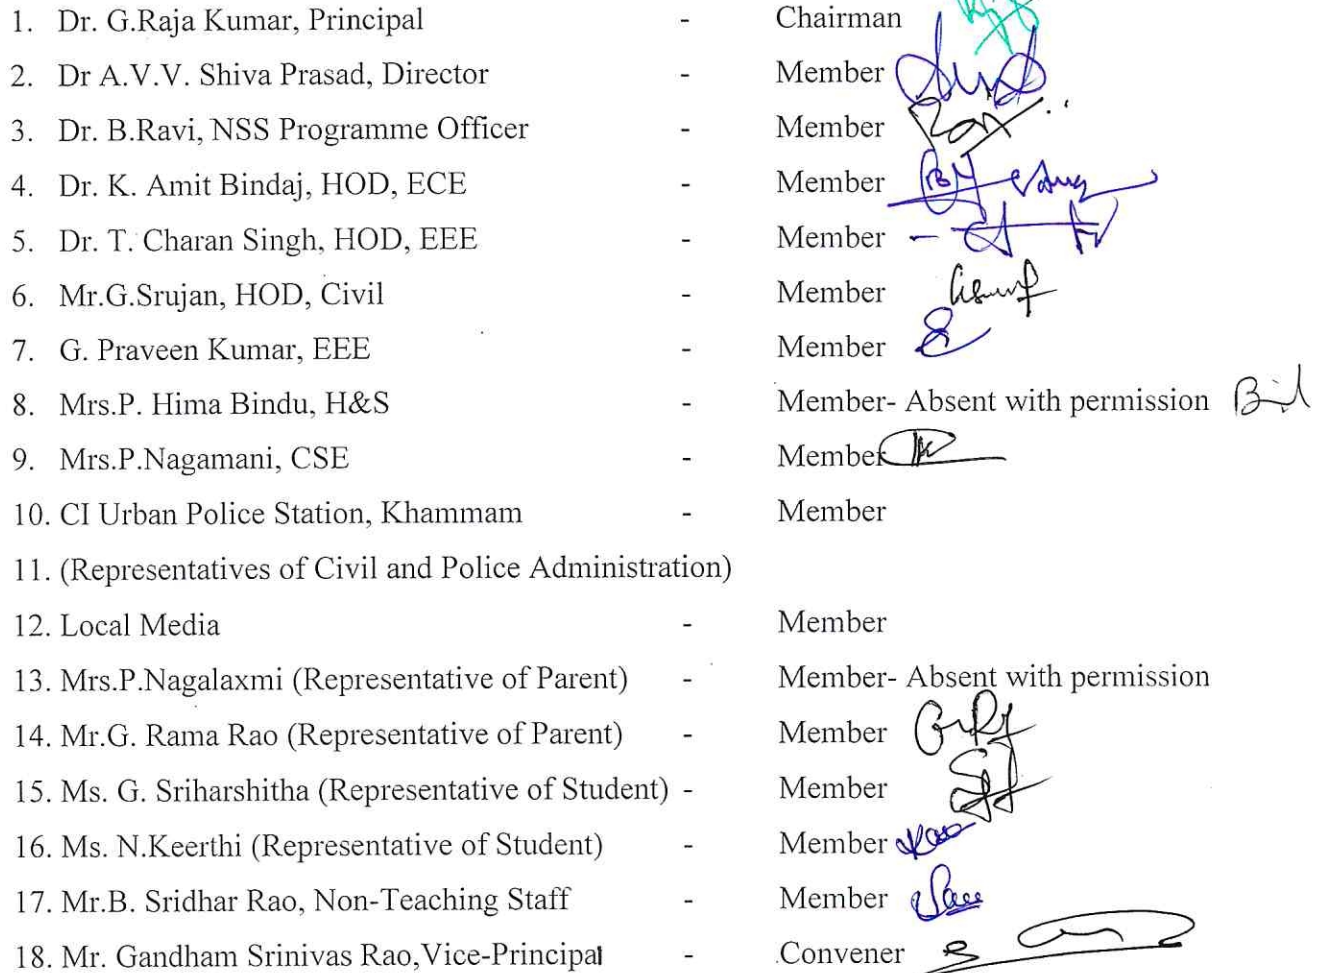 1. Dr. G.Raja Kumar, Principal - Chairman
2. Dr A.V.V. Shiva Prasad, Director - Member
3. Dr. B.Ravi, NSS Programme Officer - Member
4. Dr. K. Amit Bindaj, HOD, ECE - Member
5. Dr. T. Charan Singh, HOD, EEE - Member
6. Mr.G.Srujan, HOD, Civil - Member
7. G. Praveen Kumar, EEE - Member
8. Mrs.P. Hima Bindu, H&S - Member- Absent with permission
9. Mrs.P.Nagamani, CSE - Member
10. CI Urban Police Station, Khammam - Member
11. (Representatives of Civil and Police Administration)
12. Local Media - Member
13. Mrs.P.Nagalaxmi (Representative of Parent) - Member- Absent with permission
14. Mr.G. Rama Rao (Representative of Parent) - Member
15. Ms. G. Sriharshitha (Representative of Student) - Member
16. Ms. N.Keerthi (Representative of Student) - Member
17. Mr.B. Sridhar Rao, Non-Teaching Staff - Member
18. Mr. Gandham Srinivas Rao,Vice-Principal - Convener